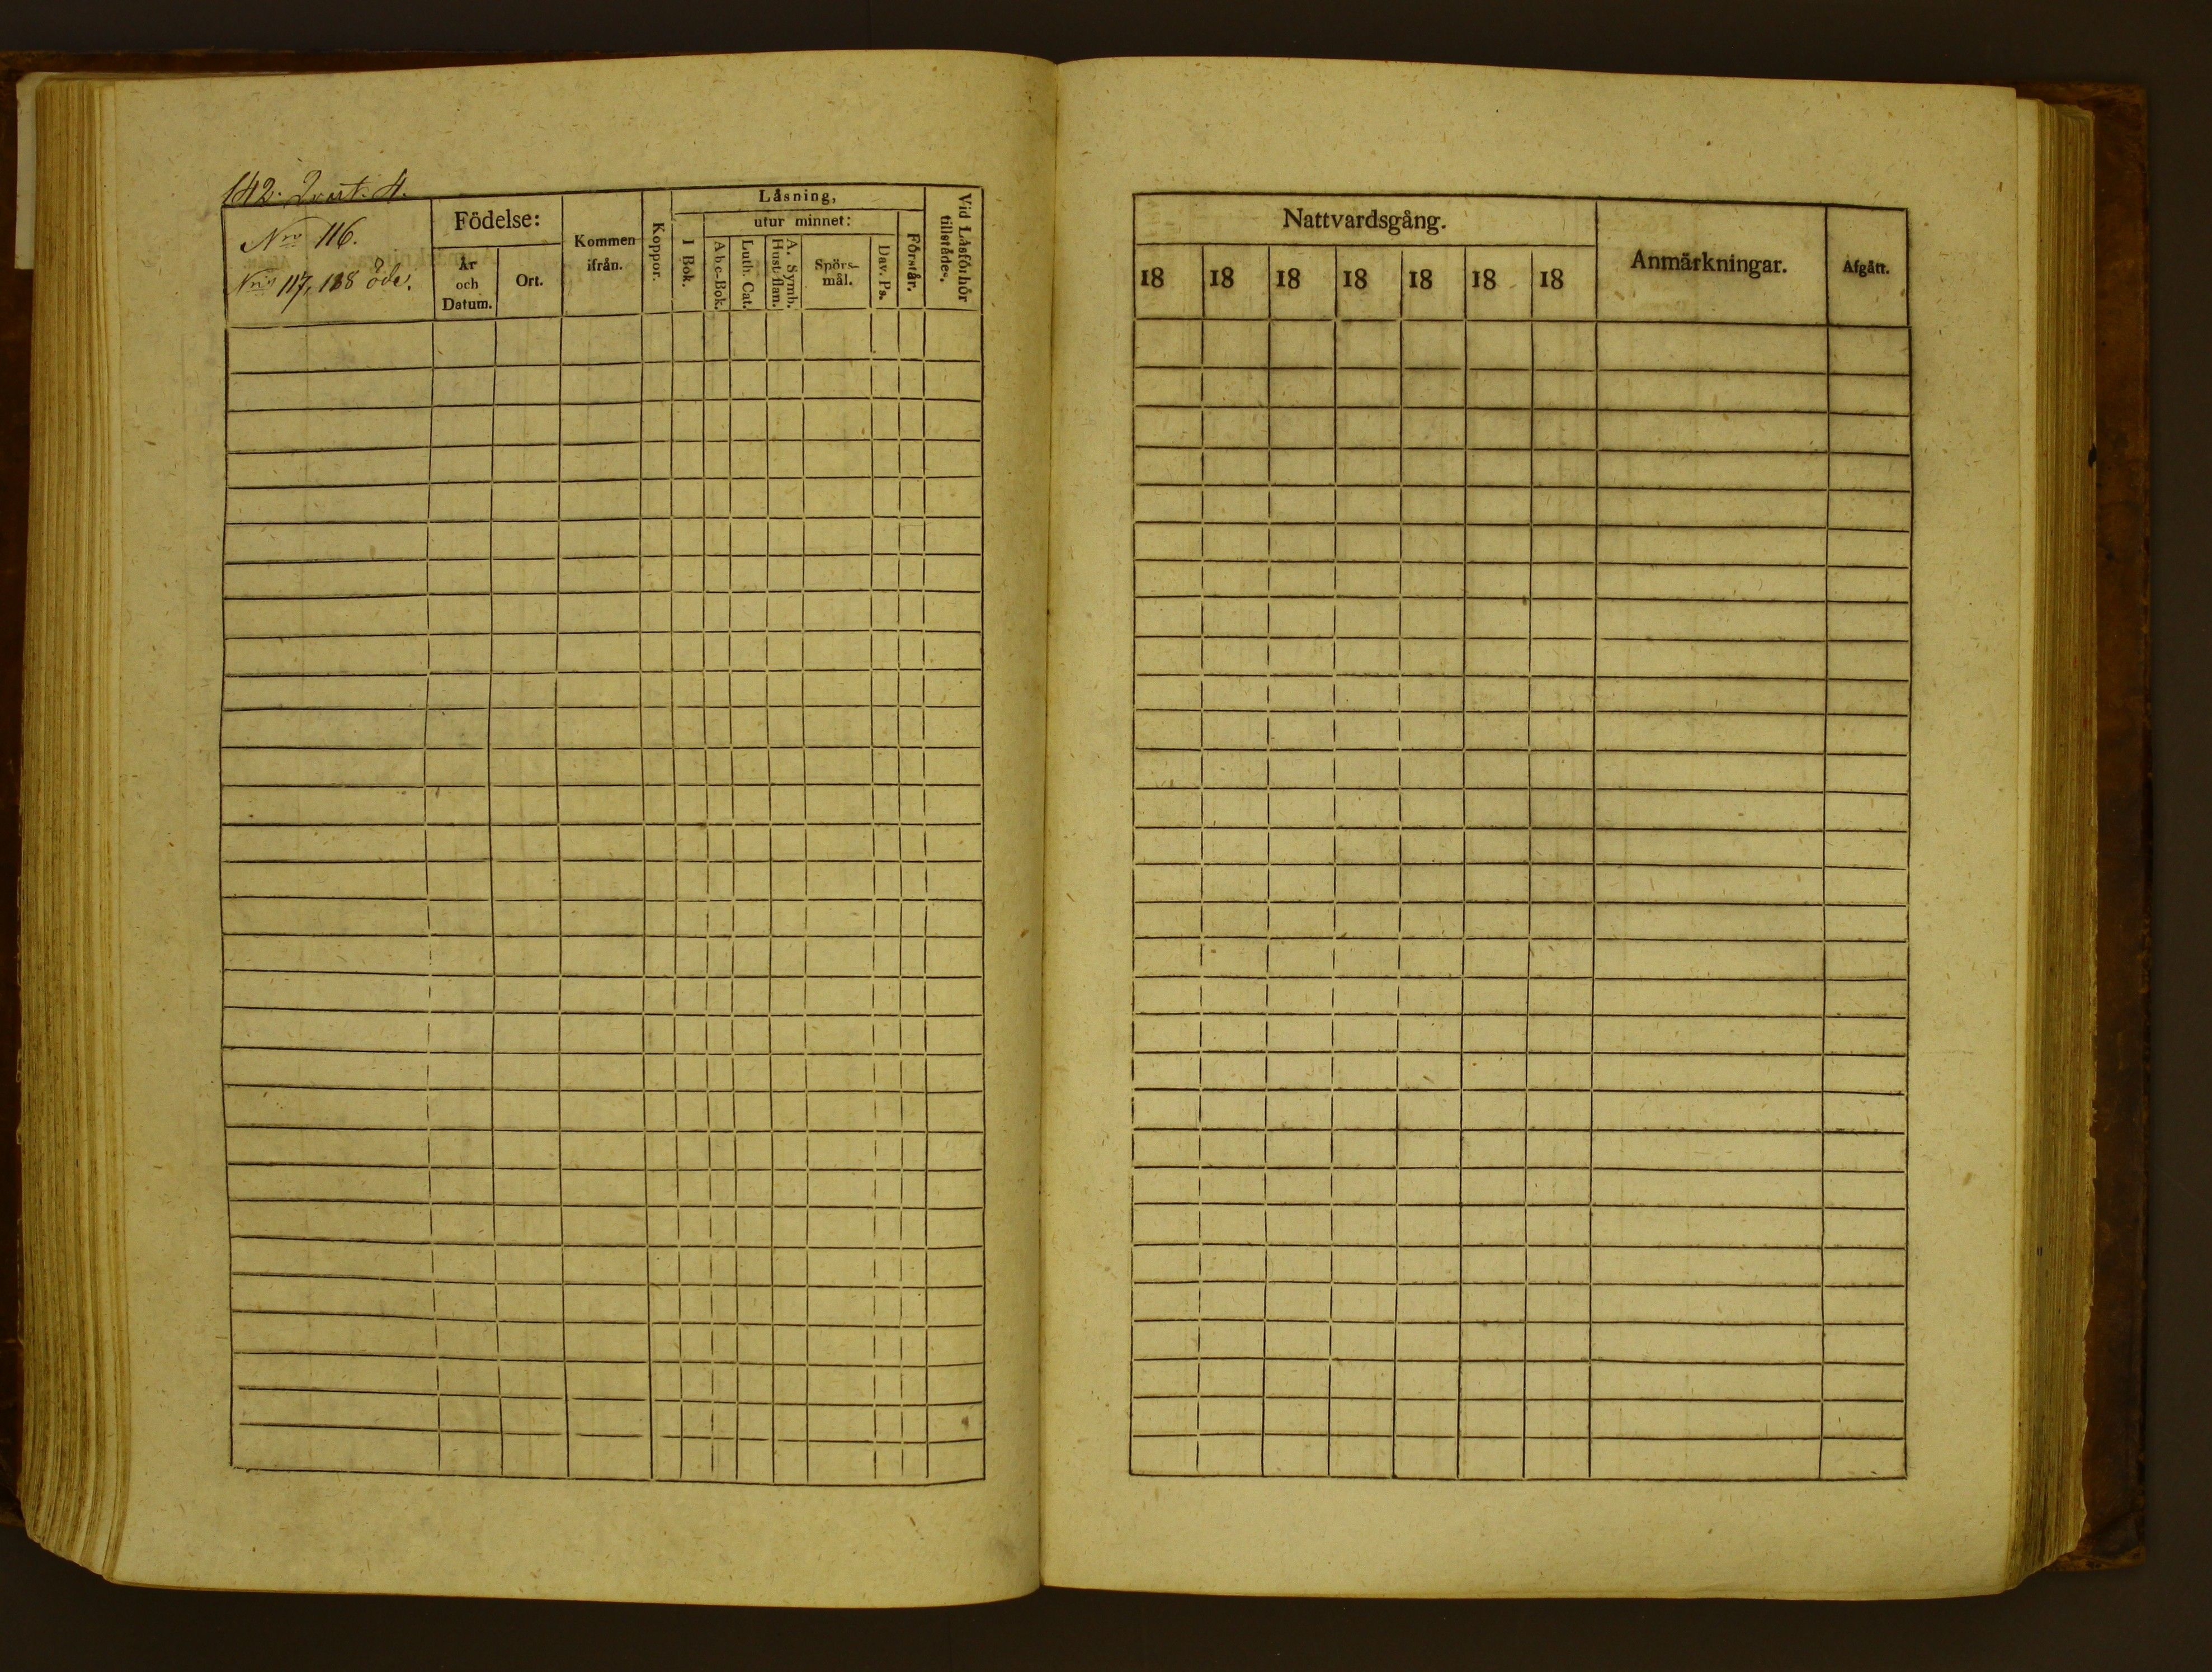 142. Qvart. 4.
Nro 116.
Nris 117, 118 öde.
Födelse:
År
och
Datum.
Ort.
Kommen
ifrån.
Koppor.
Läsning,
I Bok.
utur minnet:
Abc-Bok.
Luth. Cat.
A. Symb.
Hust-flan.
Spörs-
mål.
Dav. Ps.
Förstår.
Vid Läsförhör
tillstädes.
Nattvardsgång.
18 18 18 18 18 18 18
Anmärkningar.
Afgått.